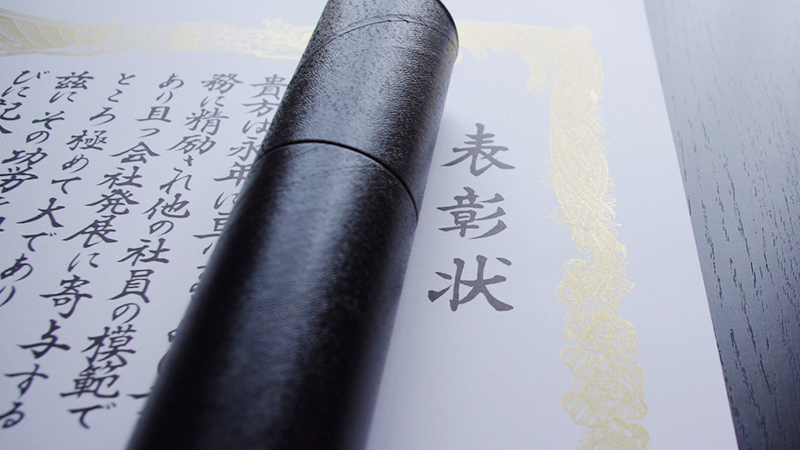 表彰状
貴方は永年に亘り
務に精励され他の社員の模範で
あり且つ会社発展に寄与する
ところ極めて大であり
茲にその功労